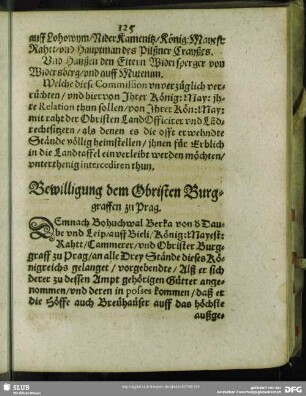 125
auff Lohowym/Nider Kamenitz/König: Mayest:
Rahtt/vnd Hauptman des Pilßner Crayßes.
Vnd Hanßen den Eltern Widersperger von
Widersberg/vnd auff Mutenin.
Welche diese Commission vnverzüglich ver-
richten/vnd hiervon Ihrer König: May: jh-
re Relation thun sollen/von Ihrer Kön: May:
mit raht der Obristen Land Officirer vnd Lād-
rechtsitzern/als denen es die offt erwehndte
Stände völlig heimstellen/jhnen für Erblich
in die Landtaffel einverleibt werden möchten/
vnterthenig intercediren thun.
Bewilligung dem Obristen Burg-
graffen zu Prag.
DEmnach Bohuchwal Berka von d Dau-
be vnd Leip/auff Bieli/König: Mayest:
Rahtt/Cammerer/vnd Obrister Burg-
graff zu Prag/an alle Drey Stände dieses Kö-
nigreichs gelanget/vorgebendte/Alß er sich
derer zu dessen Ampt gehörigen Gütter ange-
nommen/vnd deren in posses kommen/daß er
die Höffe auch Breühäuser auff das höchste
außge-
SLUB